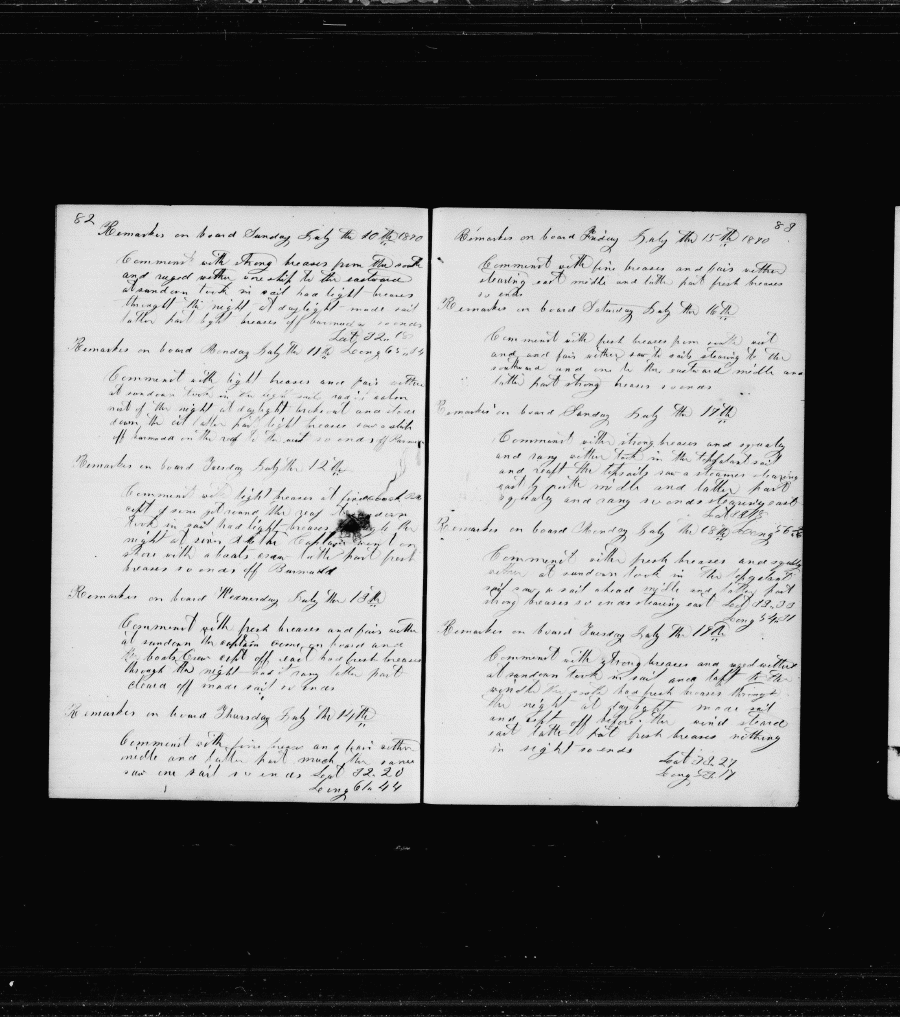 82
Remarkes on board Sunday July the 10th 1870
Comment with strong breases from the south
and ruged wether one ship to the eastward
at sundown took in sail had light breases
throught the night at daylight made sail
latter part light breases off barmada so ends
Lat 32
Remarkes on board Monday July the 11th Long 65 14
Comment with light breases and fair wether
at sundown took in
of the night at daylight and
down the latter part light breases saw a
off barmada on the to the so ends off
Remarkes on board Tuesday July the 12th
Comment with light breases at
kept of and round the reaf sundown
took in sail had light breases to the
night at the Captain went on
shore with a boats crew latter part fresh
breases so ends off Barmada
Remarkes on board Wednesday July the 13th
Comment with fresh breases and fair wether
at sundown the captain come on board and
the boats Crew kept off east had fresh breases
through the night and rany latter part
cleard off made sail so ends
Remarkes on board Thursday July the 14th
Comment with fine breases and fair wether
midle and latter part much the same
saw one sail so ends Lat 32 20
Long 61 44
83
Remarkes on board Friday July the 15th 1870
Comment with fine breases and fair wether
stearing east midle and latter part fresh breases
so ends
Remarkes on board Saturday July the 16th
Comment with fresh breases from south west
and and fair wether saw to sails stearing to the
southward and one to the eastward midle and
latter part strong breases so ends
Remarkes on board Sunday July the 17th
Comment with strong breases and squaly
and rany wether took in the topgalant sail
and reaft the topsails saw a steamer stearing
east by midle and latter part
squaly and rany so ends stearing east
Lat
Remarkes on board Monday July the 18th Long 56
Comment with fresh breases and squaly
wether at sundown took in the topgalant
sail saw a sail ahead midle and latter part
strong breases so ends stearing east Lat 33.33
Long 54.31
Remarkes on board Tuesday July the 19th
Comment with strong breases and ruged wether
at sundown took in sail and luft to the
wind had fresh breases throught
the night at daylight made sail
and kept off before the wind steard
east latter part fresh breases nothing
in sight so ends
Lat 33.27
Long 17